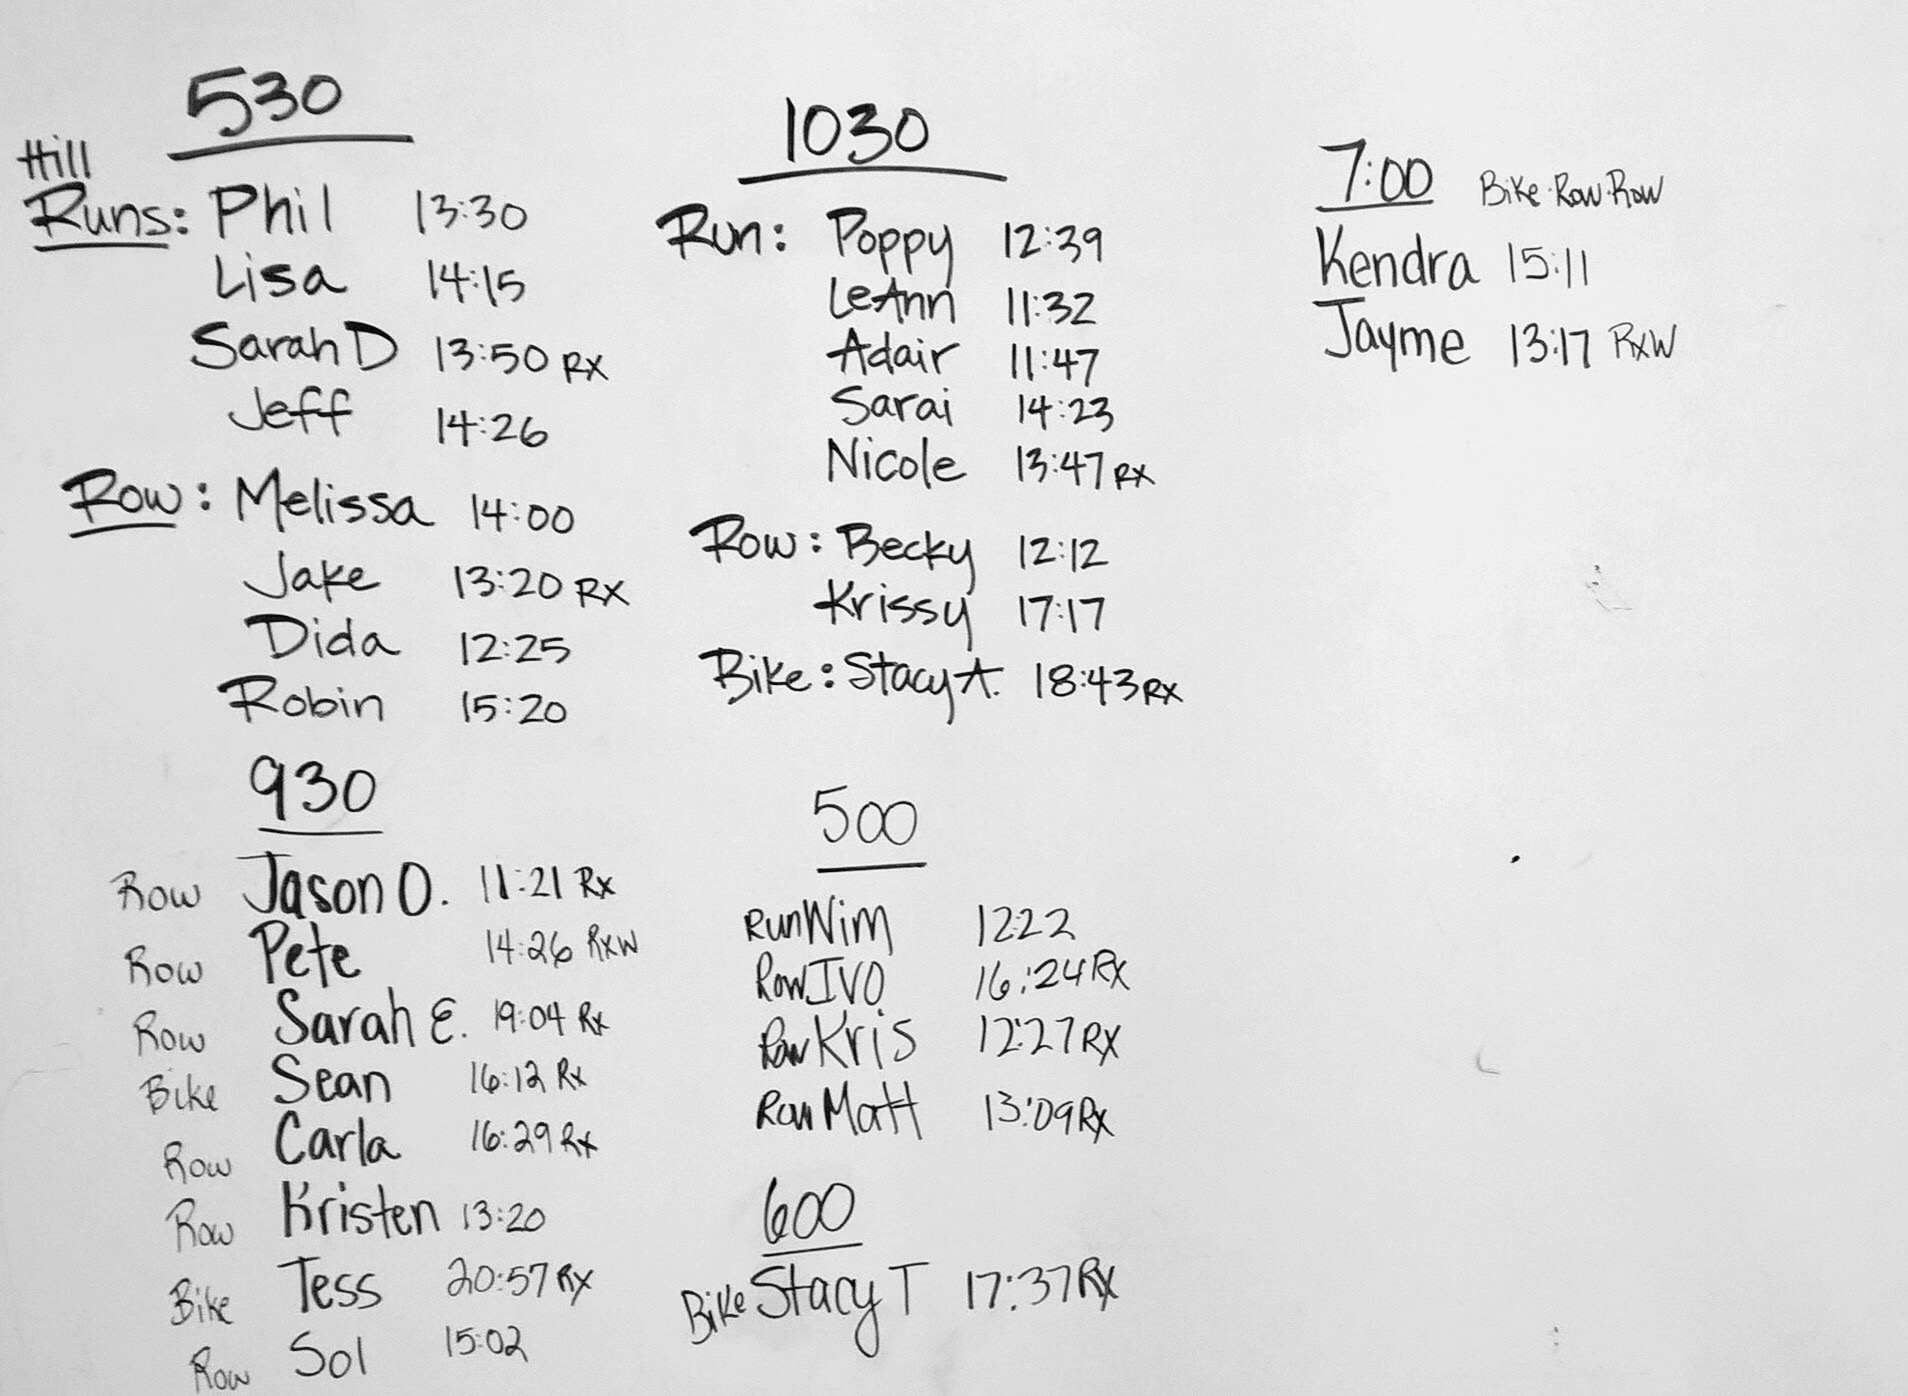 530
Hill
Runs: Phil 13:30
Lisa 14:15
Sarah D 13:50 RX
Jeff 14:26
Row: Melissa 14:00
Jake 13:20 RX
Dida 12:25
Robin 15:20
930
Row Jason O. 11:21 Rx
Row Pete 14:26 RxW
Row Sarah E. 19:04 Rx
Bike Sean 16:12 Rx
Row Carla 16:29 Rx
Row Kristen 13:20
Bike Tess 20:57 RX
Row Sol 15:02
1030
Run: Poppy 12:39
LeAnn 11:32
Adair 11:47
Sarai 14:23
Nicole 13:47 RX
Row: Becky 12:12
Krissy 17:17
Bike: Stacy A. 18:43 RX
500
Run Wim 12:22
Row IVO 16:24 RX
Row Kris 12:27 RX
Row Matt 13:09 RX
600
Bike Stacy T 17:37 RX
7:00 Bike·Row·Row
Kendra 15:11
Jayme 13:17 RxW